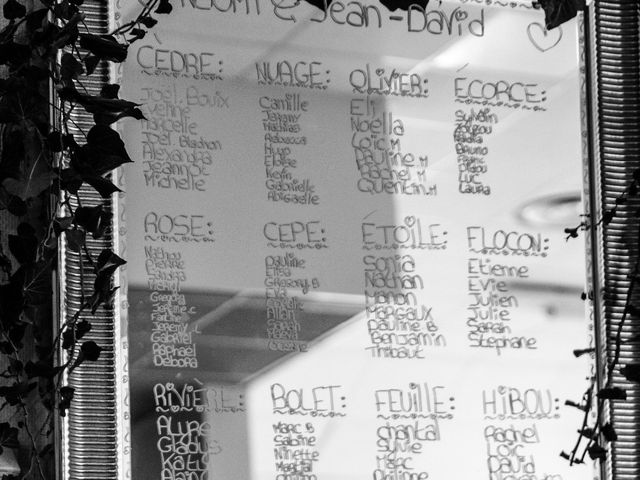 & Jean-David
CÈDRE:
Joël Bouix
Yveline
Marcelle
Joël Blachon
Alexandra
Jeannot
Michelle
NUAGE:
Camille
Jérémy
Mathias
Rebecca
Hugo
Eloïse
Kevin
Gabrielle
Abigaelle
OLIVIER:
Eli
Noëlla
Loïc M
Pauline M
Rachel M
Quentin M
ÉCORCE:
Sylvain
Nadia
Bruno
Luc
Laura
ROSE:
Sandra
Jérémie C
Jérémy L
Gabriel
Raphaël
Débora
CÈPE:
Pauline
Elisa
Grégory B
Eva
Allan
ÉTOILE:
Sonia
Nathan
Manon
Margaux
Pauline B
Benjamin
Thibaut
FLOCON:
Etienne
Evie
Julien
Julie
Sarah
Stéphane
RIVIÈRE:
Gladys
Katy
Alain
BOLET:
Marc B
Sabine
Ninette
FEUILLE:
Chantal
Sylvie
Marc
Philippe
HIBOU:
Rachel
Loïc
David